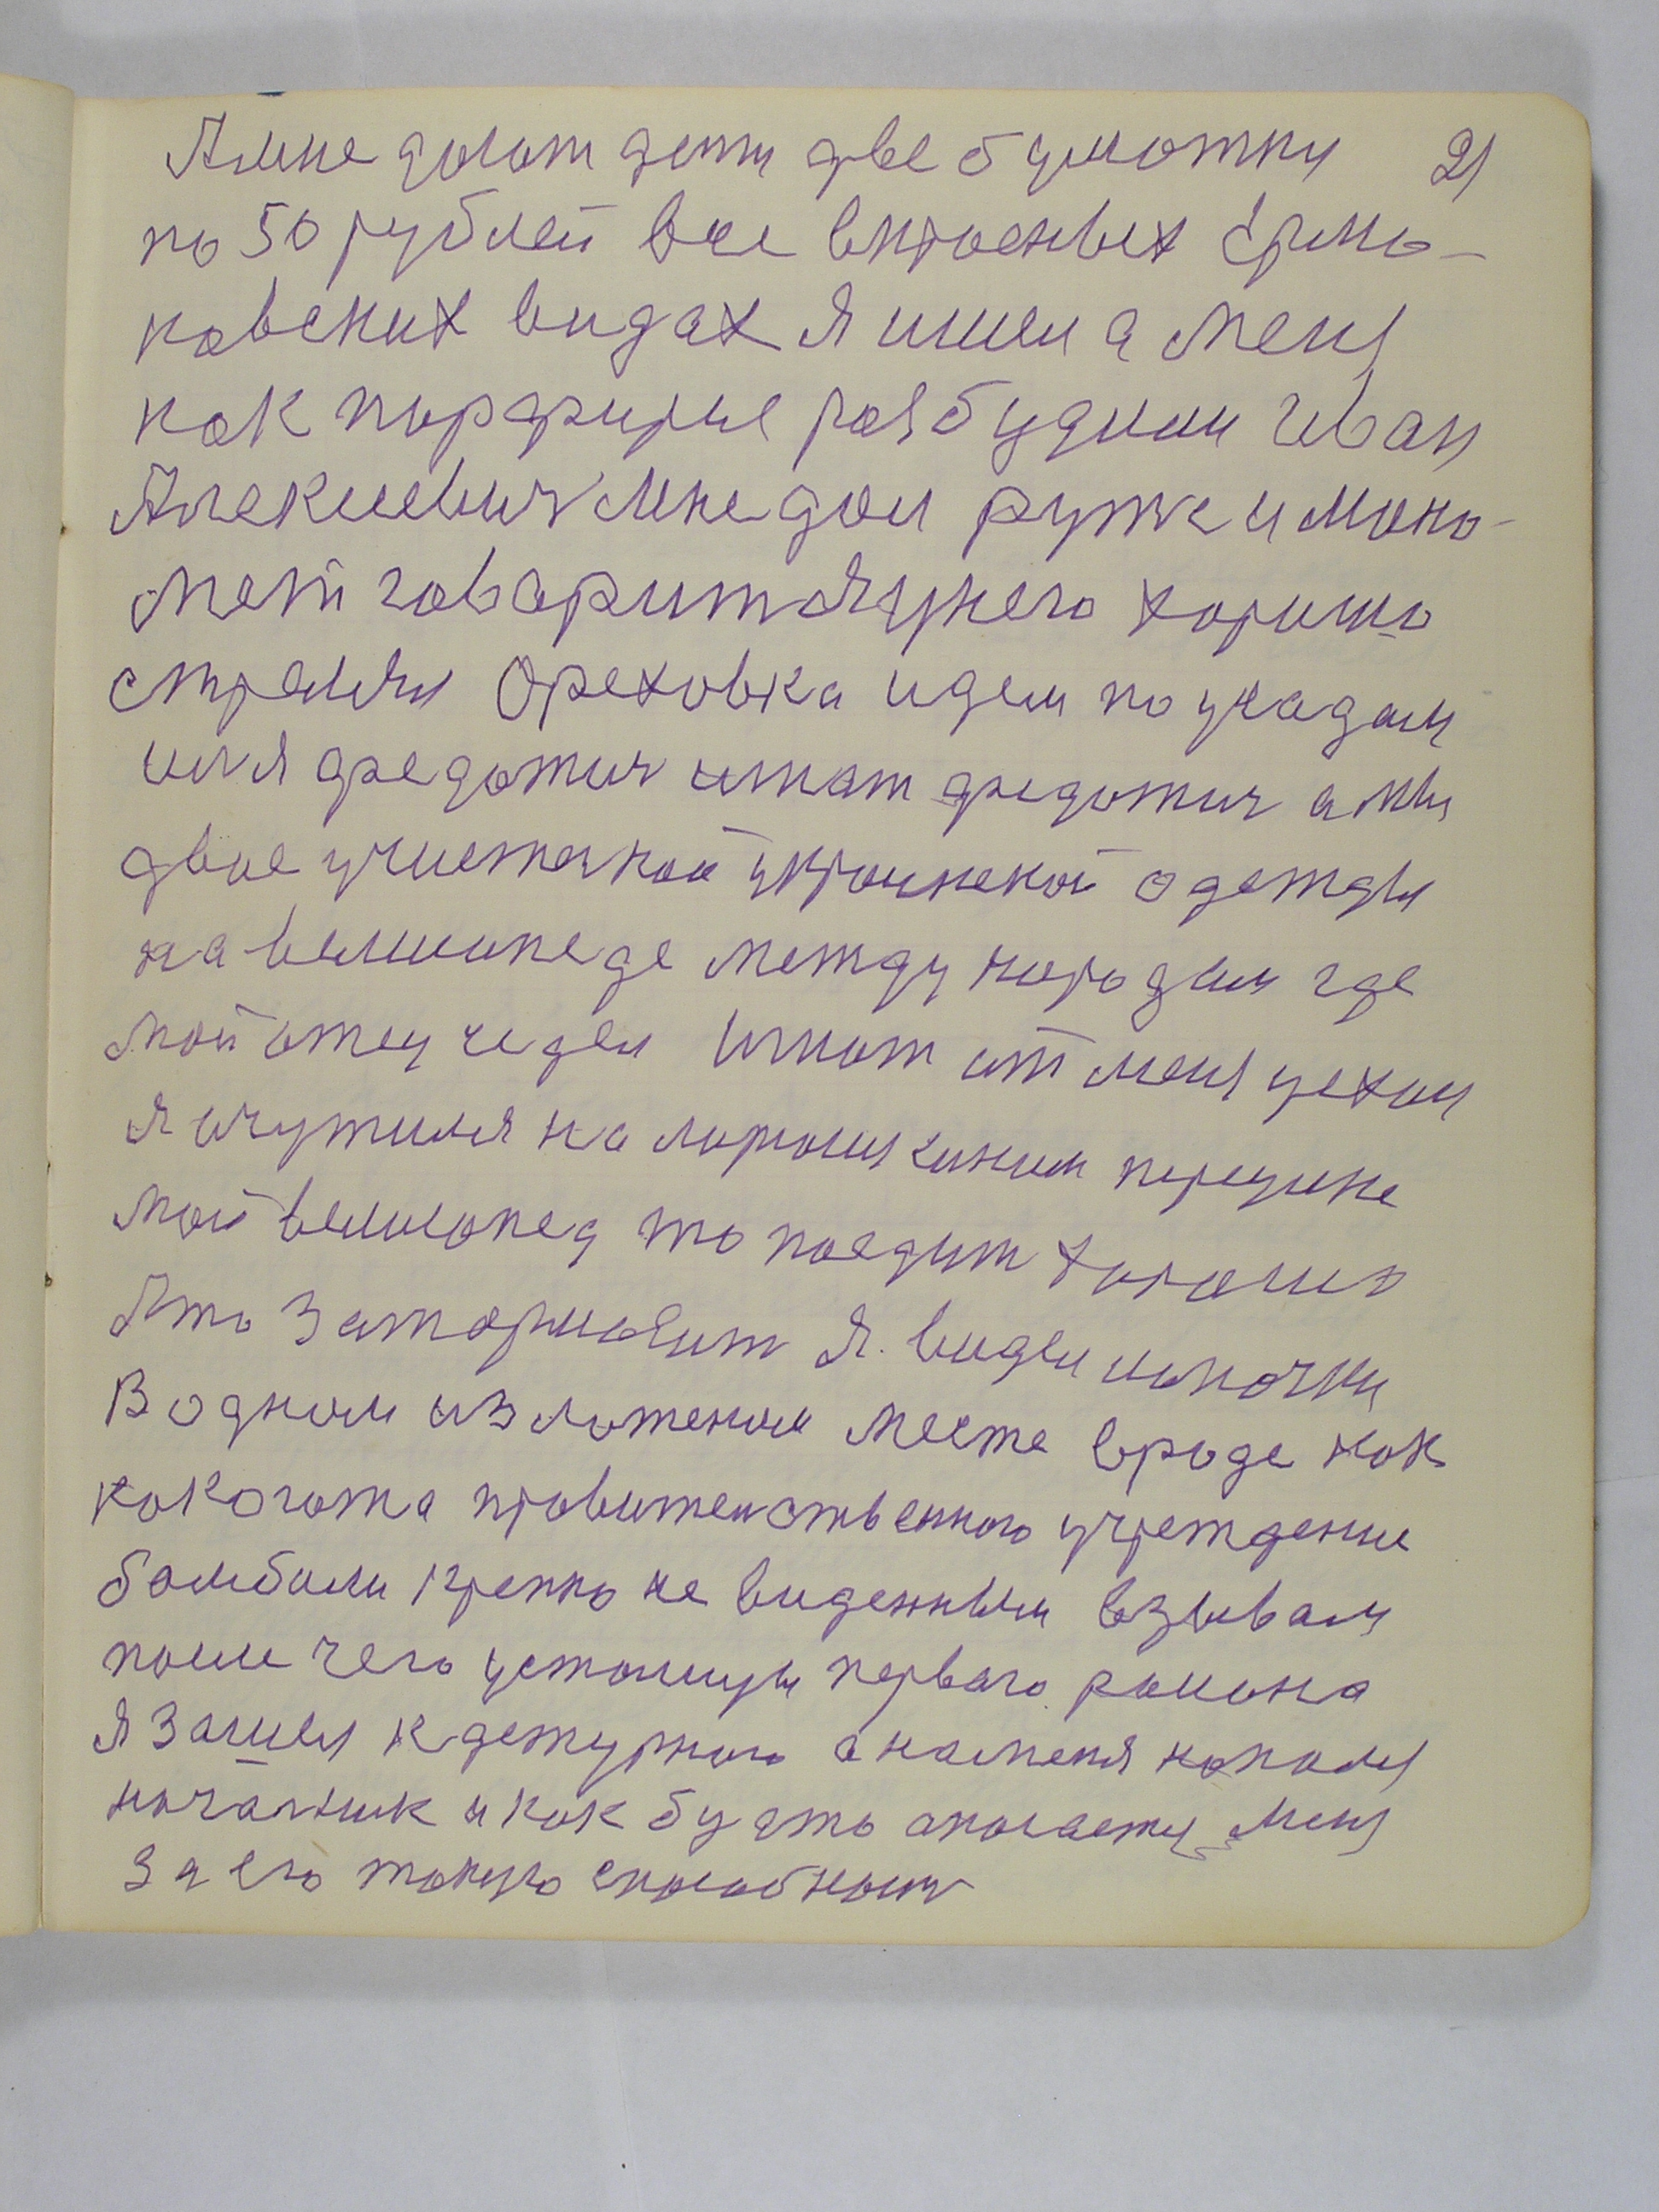 А мне дают дети две бумашки 21
по 50 рублей все в красных Ерма-
ковских видах я ишел а меня
как порфирье разбудил Иван
Алексеевич мне дал руже и мано-
мет говарит я у него хорошо
стрелял Ореховка идем по уладам
илья федотич игнат федотич а мы
двое участской украинской одежды
на велисипеде между народам где
мой отец сидел Игнат от меня уехал
я очутился на лорошкином переулке
мой велисопед то поедит хорошо
А то затормозит я видел илпочки
В одном изложеном месте вроде как
какогота правительственного учреждение
бомбили крепко не виденным взрывам
после чего устолицы первого раиона
Я зашел к дежурного а на меня напалы
начальник и как будто опосаетца меня
за его такую способность